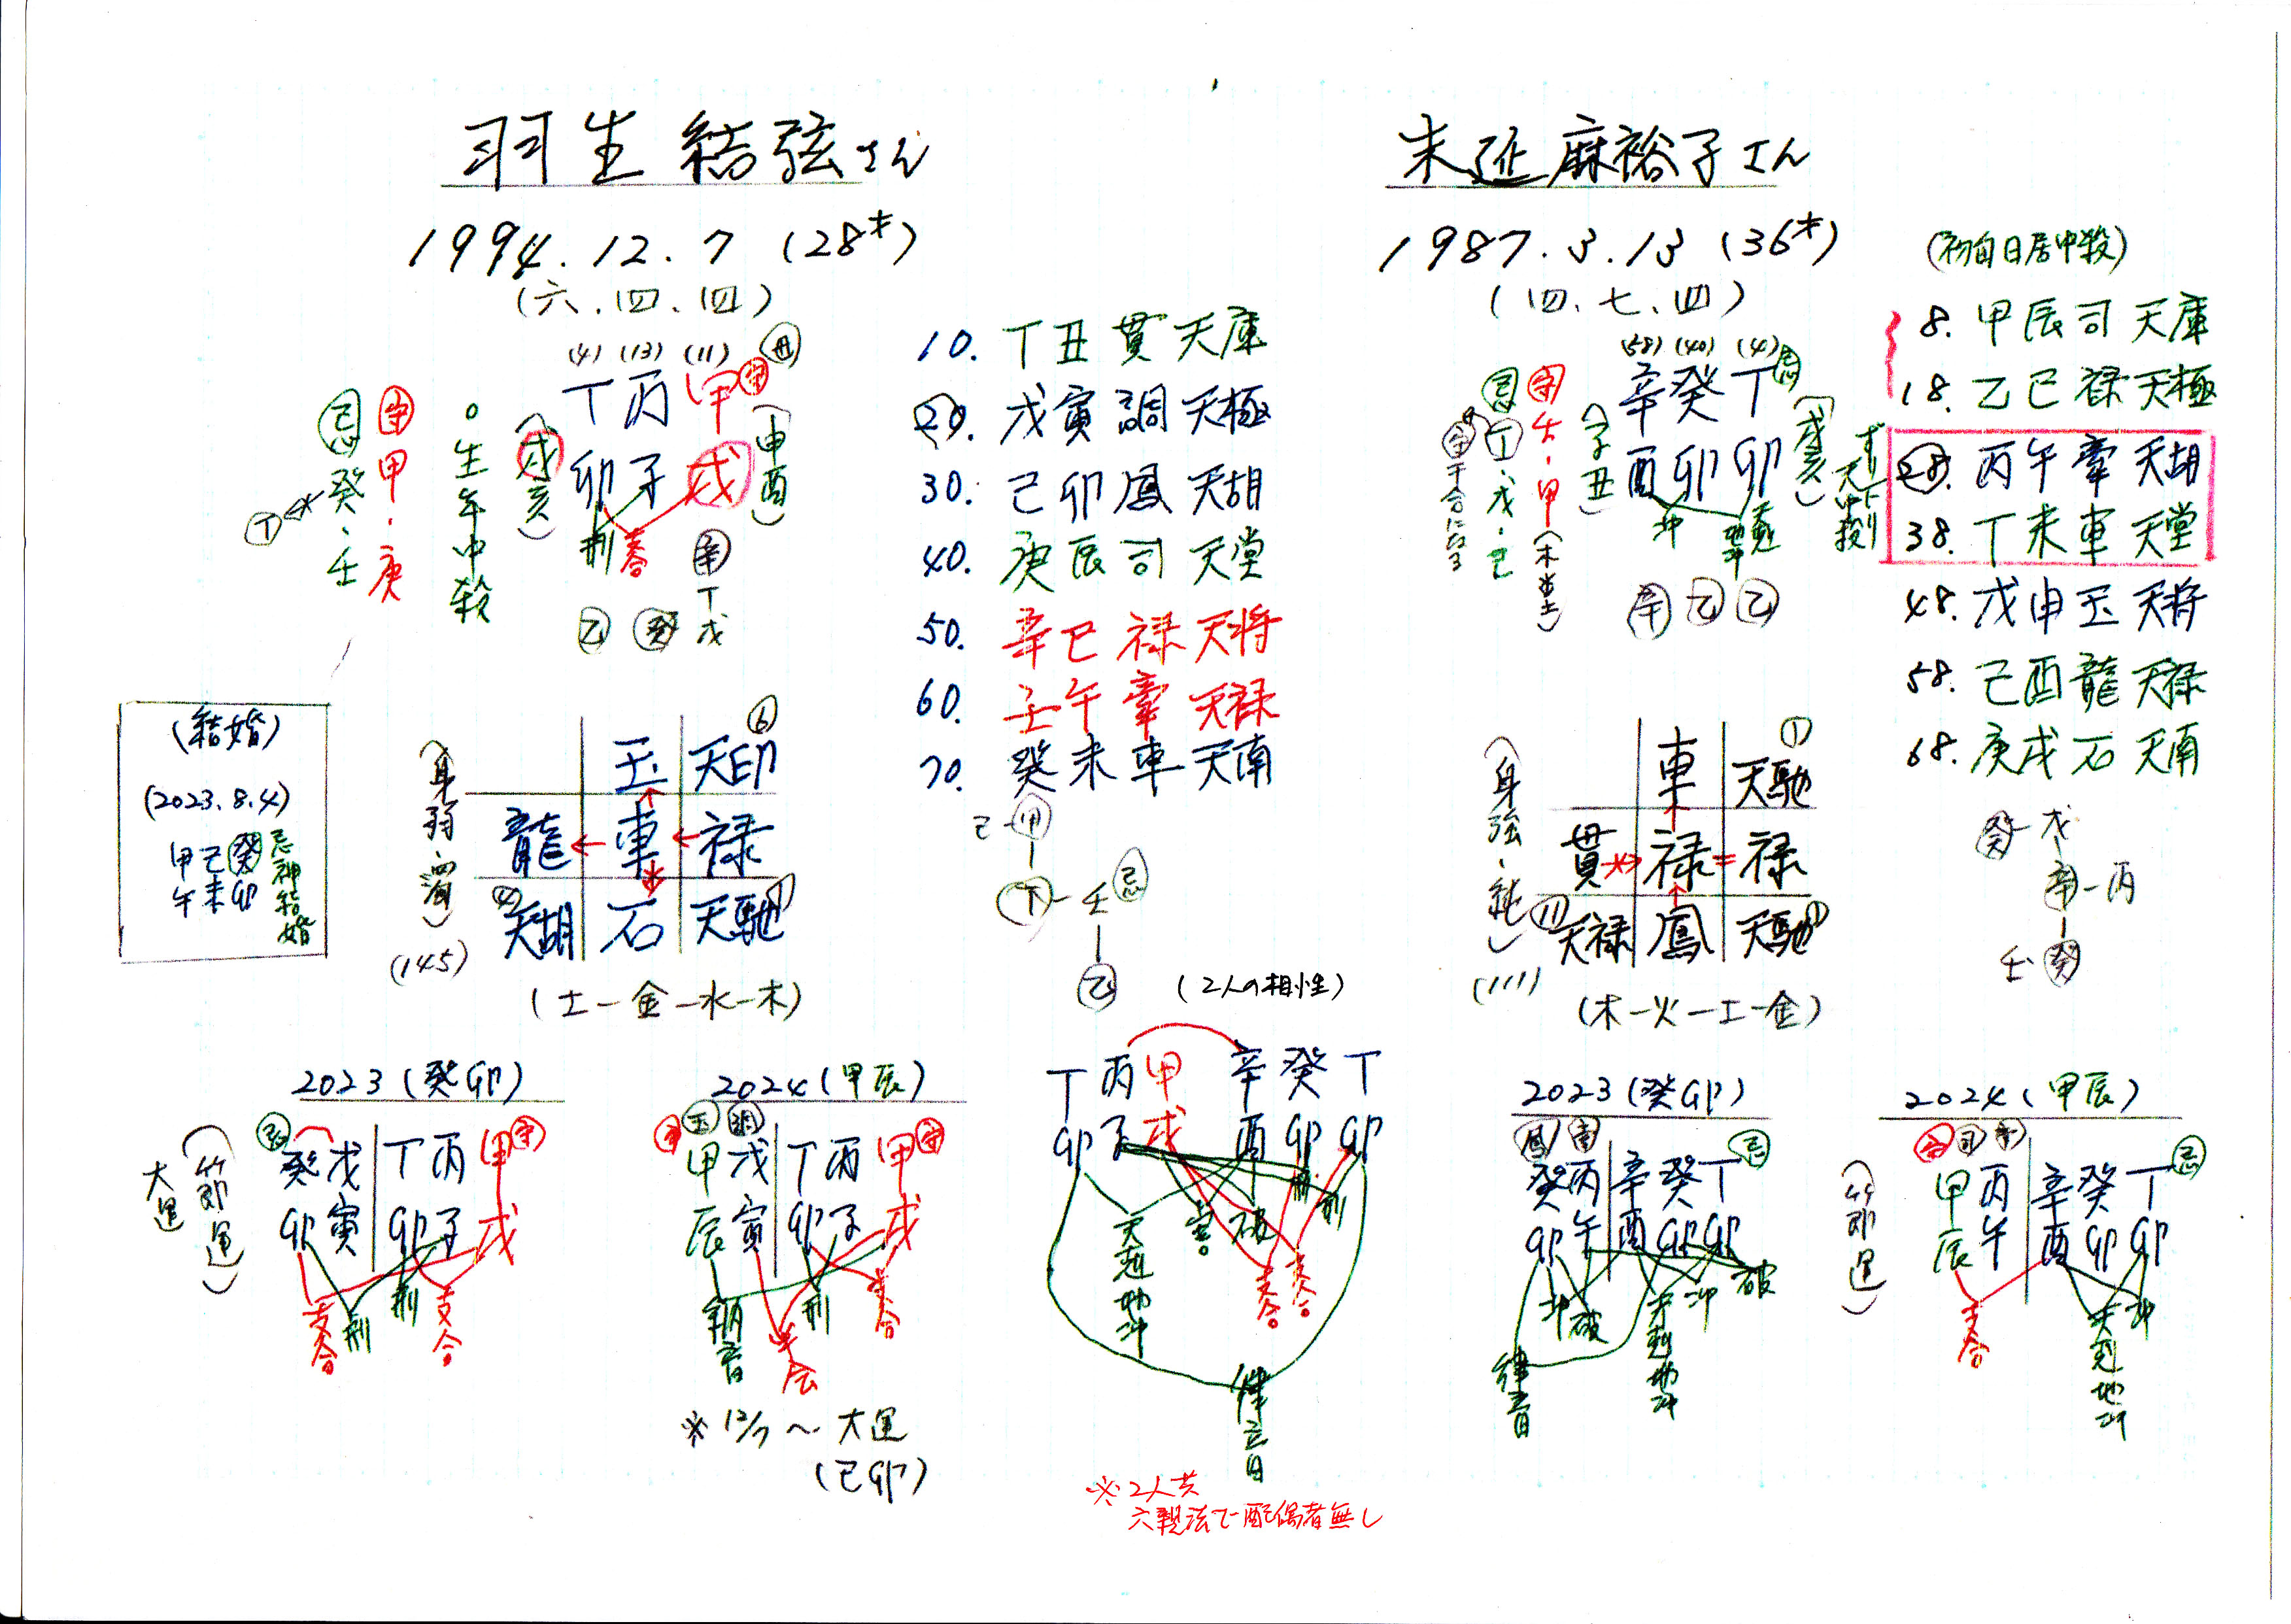 羽生結弦さん
1994.12.7 (28才)
(六.四.四)
(4) (13) (11)
丁丙甲
卯子戌
(戌亥)
(申酉)
守 甲・庚
忌 癸・壬
丁
○生年中殺
刑 支合
辛
丁
戊
乙 癸
10. 丁丑 貫 天庫
20. 戊寅 調 天極
30. 己卯 鳳 天胡
40. 庚辰 司 天堂
50. 辛巳 禄 天将
60. 壬午 牽 天禄
70. 癸未 車 天南
(結婚)
(2023.8.4)
甲己癸
午未卯
忌神結婚
(身弱・濁)
(145)
玉 天印 6
龍 車 禄
天胡 石 天馳 1
(土-金-水-木)
己-甲
丁-壬 忌
乙
末延麻裕子さん
1987.3.13 (36才)
(四、七、四)
(58) (40) (4)
辛癸丁 忌
酉卯卯
(子丑)
(戌亥)
守 壬・甲
忌 丁・戊・己
干合になる
冲 天剋地冲
辛 乙 乙
(初旬日居中殺)
8. 甲辰 司 天庫
18. 乙巳 禄 天極
28. 丙午 牽 天胡
38. 丁未 車 天堂
48. 戊申 玉 天将
58. 己酉 龍 天禄
68. 庚戌 石 天南
天中殺
(身強・純)
(111)
車 天馳 1
貫 禄 = 禄
11 天禄 鳳 天馳 1
(木-火-土-金)
癸-戊
辛-丙
壬-癸
2023(癸卯)
忌 癸戊 丁丙甲 守
卯寅 卯子戌
大運
(節運)
支合 刑 刑 支合
2024(甲辰)
守 玉 調
甲戊 丁丙甲 守
辰寅 卯子戌
納音 半会 刑 支合
※12/7~大運
(己卯)
(2人の相性)
丁丙甲 辛癸丁
卯子戌 酉卯卯
天剋地冲 害 破 支合 支合 刑 刑
律音
※2人共
六親法で配偶者無し
2023(癸卯)
鳳 牽
癸丙 辛癸丁 忌
卯午 酉卯卯
律音 冲 破 天剋地冲 冲 破
2024(甲辰)
守 司 牽
甲丙 辛癸丁 忌
辰午 酉卯卯
(節運)
支合 天剋地冲 冲